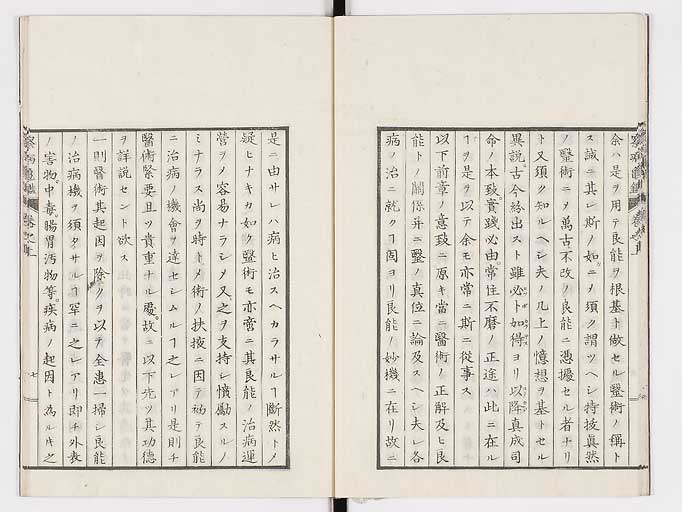 余ハ是ヲ用テ良能ヲ根基ト做セル毉術ノ稱ト
ス誠ニ其レ斯ノ如ニメ須ク謂ツヘシ特抜真然
ノ毉術ニメ萬古不改ノ良能ニ憑據セル者ナリ
ト又須ク知ルヘシ夫ノ几上ノ憶想ヲ基トセル
異説古今紛出スト雖必ト如得ヨリ以降真成司
命ノ本致實踐必由常住不磨ノ正途ハ此ニ在ル
ヿヲ是ヲ以テ余モ亦常ニ斯ニ從事ス
以下前章ノ意致ニ原キ當ニ醫術ノ正解及ヒ良
能トノ關係并ニ毉ノ真位ニ論及スヘシ夫レ各
病ノ治ニ就クヿ固ヨリ良能ノ妙機ニ在リ故ニ
是ニ由サレハ病ヒ治スヘカラサルヿ斷然トメ
疑ヒナキカ如ク毉術モ亦啻ニ其良能ノ治病運
營ヲメ容易ナラシメ又之ヲ支持シ憤勵スルノ
ミナラス尚ヲ時トメ術ノ扶掖ニ因テ初テ良能
ニ治病ノ機會ヲ達セシムルヿ之レアリ是則チ
醫術緊要且ツ貴重ナル處故ニ以下先ツ其功德
ヲ詳説セント欲ス
一則醫術其起因ヲ除クヲ以テ全患一掃シ良能
ノ治病機ヲ須タサルヿ罕ニ之レアリ即チ外表
ノ害物中毒腸胃汚物等疾病ノ起因ト為ルキ之
七